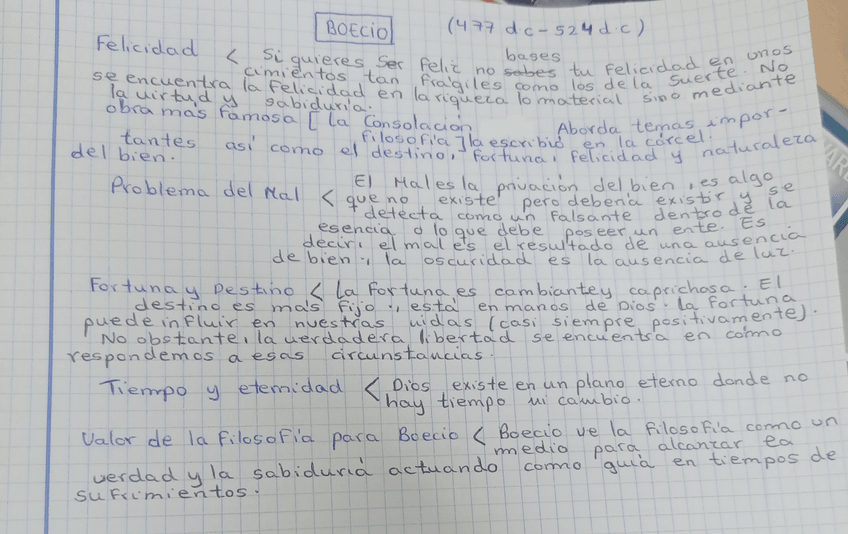 BOECIO (477 dc - 524 dc)
Felicidad < Si quieres ser feliz no bases tu felicidad en unos
cimientos tan fragiles como los de la suerte. No
se encuentra la felicidad en la riqueza lo material sino mediante
la virtud y sabiduría.
obra mas famosa [ la Consolación Aborda temas impor-
filosofia ] la escribió en la cárcel.
tantes así como el destino, fortuna, felicidad y naturaleza
del bien.
Problema del Mal < El Mal es la privación del bien, es algo
que no existe pero debería existir y se
detecta como un falsante dentro de la
esencia o lo que debe poseer un ente. Es
decir, el mal es el resultado de una ausencia
de bien ·, la oscuridad es la ausencia de luz.
Fortuna y Destino < La fortuna es cambiante y caprichosa. El
destino es más fijo ·, está en manos de Dios. La fortuna
puede influir en nuestras vidas (casi siempre positivamente).
No obstante, la verdadera libertad se encuentra en cómo
respondemos a esas circunstancias.
Tiempo y eternidad < Dios existe en un plano eterno donde no
hay tiempo ni cambio.
Valor de la filosofía para Boecio < Boecio ve la filosofía como un
medio para alcanzar la
verdad y la sabiduría actuando como guía en tiempos de
sufrimientos.